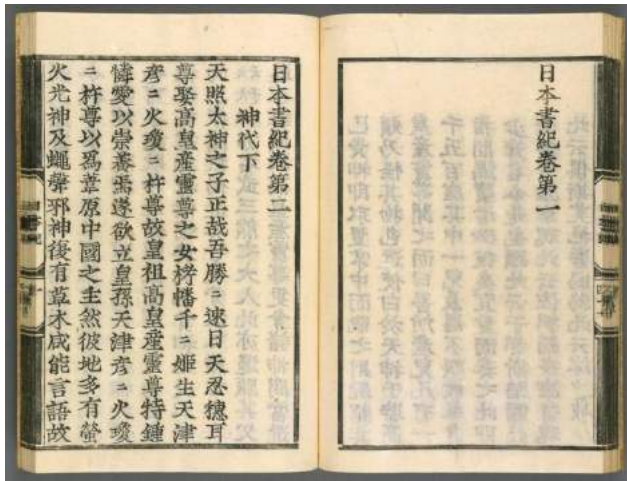 日本書紀卷第一
日本書紀卷第二
神代下
天照太神之子正哉吾勝二速日天忍穗耳
尊娶高皇産靈尊之女栲幡千二姬生天津
彦二火瓊二杵尊故皇祖高皇産靈尊特鍾
憐愛以崇養焉遂欲立皇孫天津彦二火瓊
二杵尊以爲葦原中國之主然彼地多有螢
火光神及蠅聲邪神復有草木咸能言語故